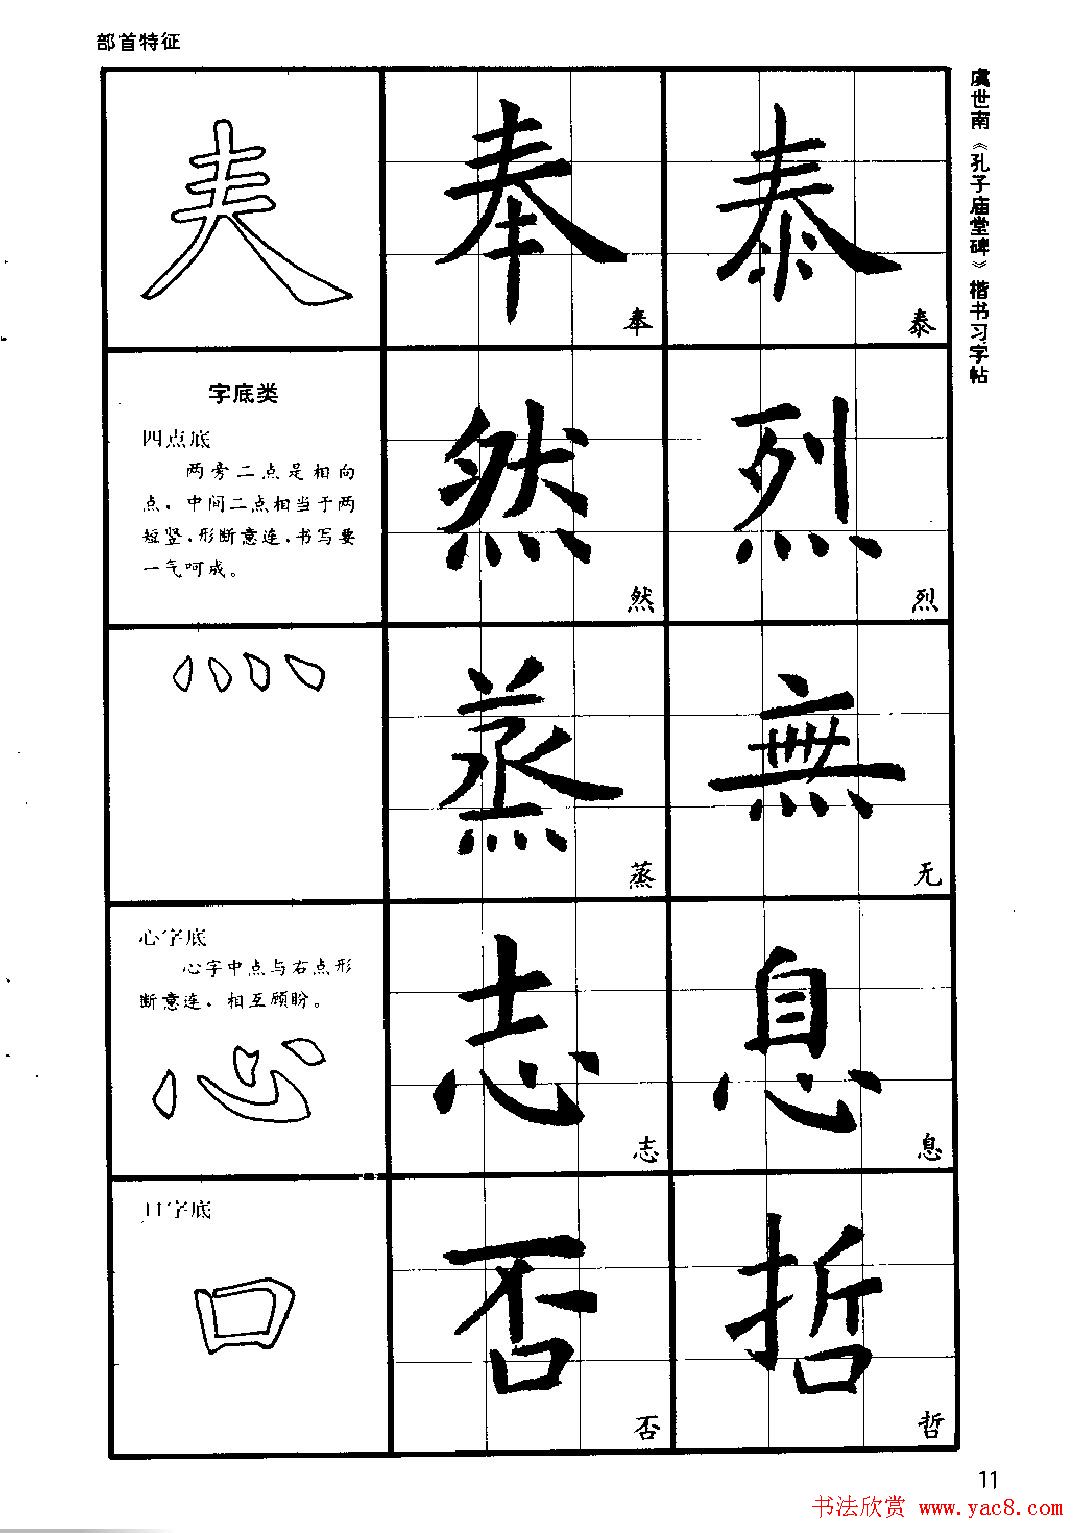 部首特征
虞世南《孔子庙堂碑》楷书习字帖
奉
奉
泰
泰
字底类
四点底
两旁二点是相向
点，中间二点相当于两
短竖，形断意连，书写要
一气呵成。
然
然
烈
烈
蒸
蒸
無
无
心字底
心字中点与右点形
断意连，相互顾盼。
心
志
志
息
息
口字底
口
否
否
哲
哲
11
书法欣赏 www.yac8.com